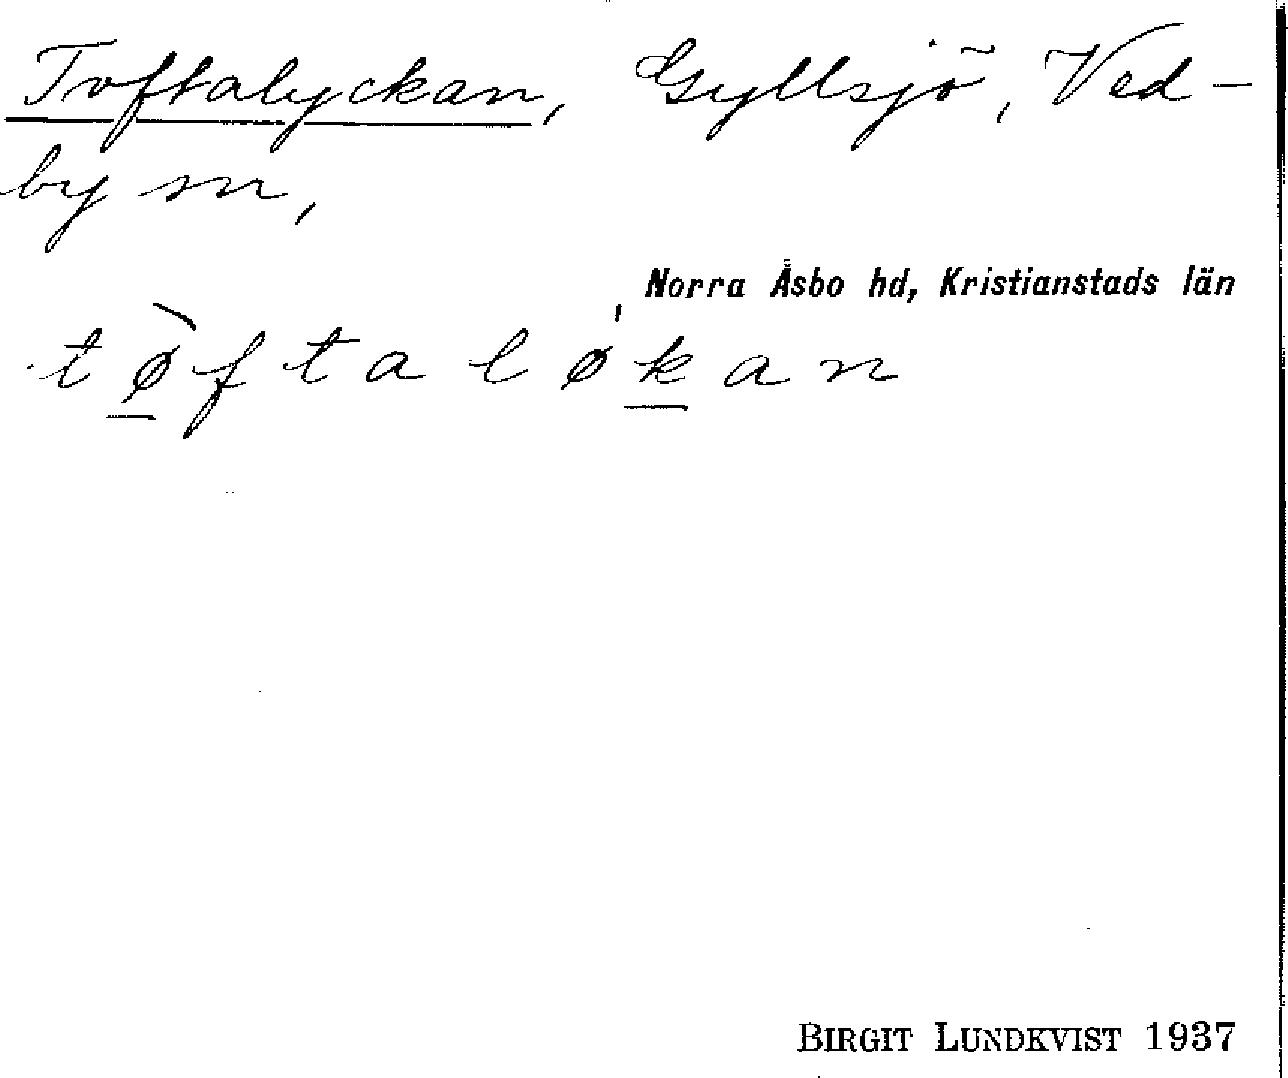 Toftalyckan, Gyllsjö, Ved-
by sn,
Norra Åsbo hd, Kristianstads län
tø̠̀ftaløk̠an
BIRGIT LUNDKVIST 1937